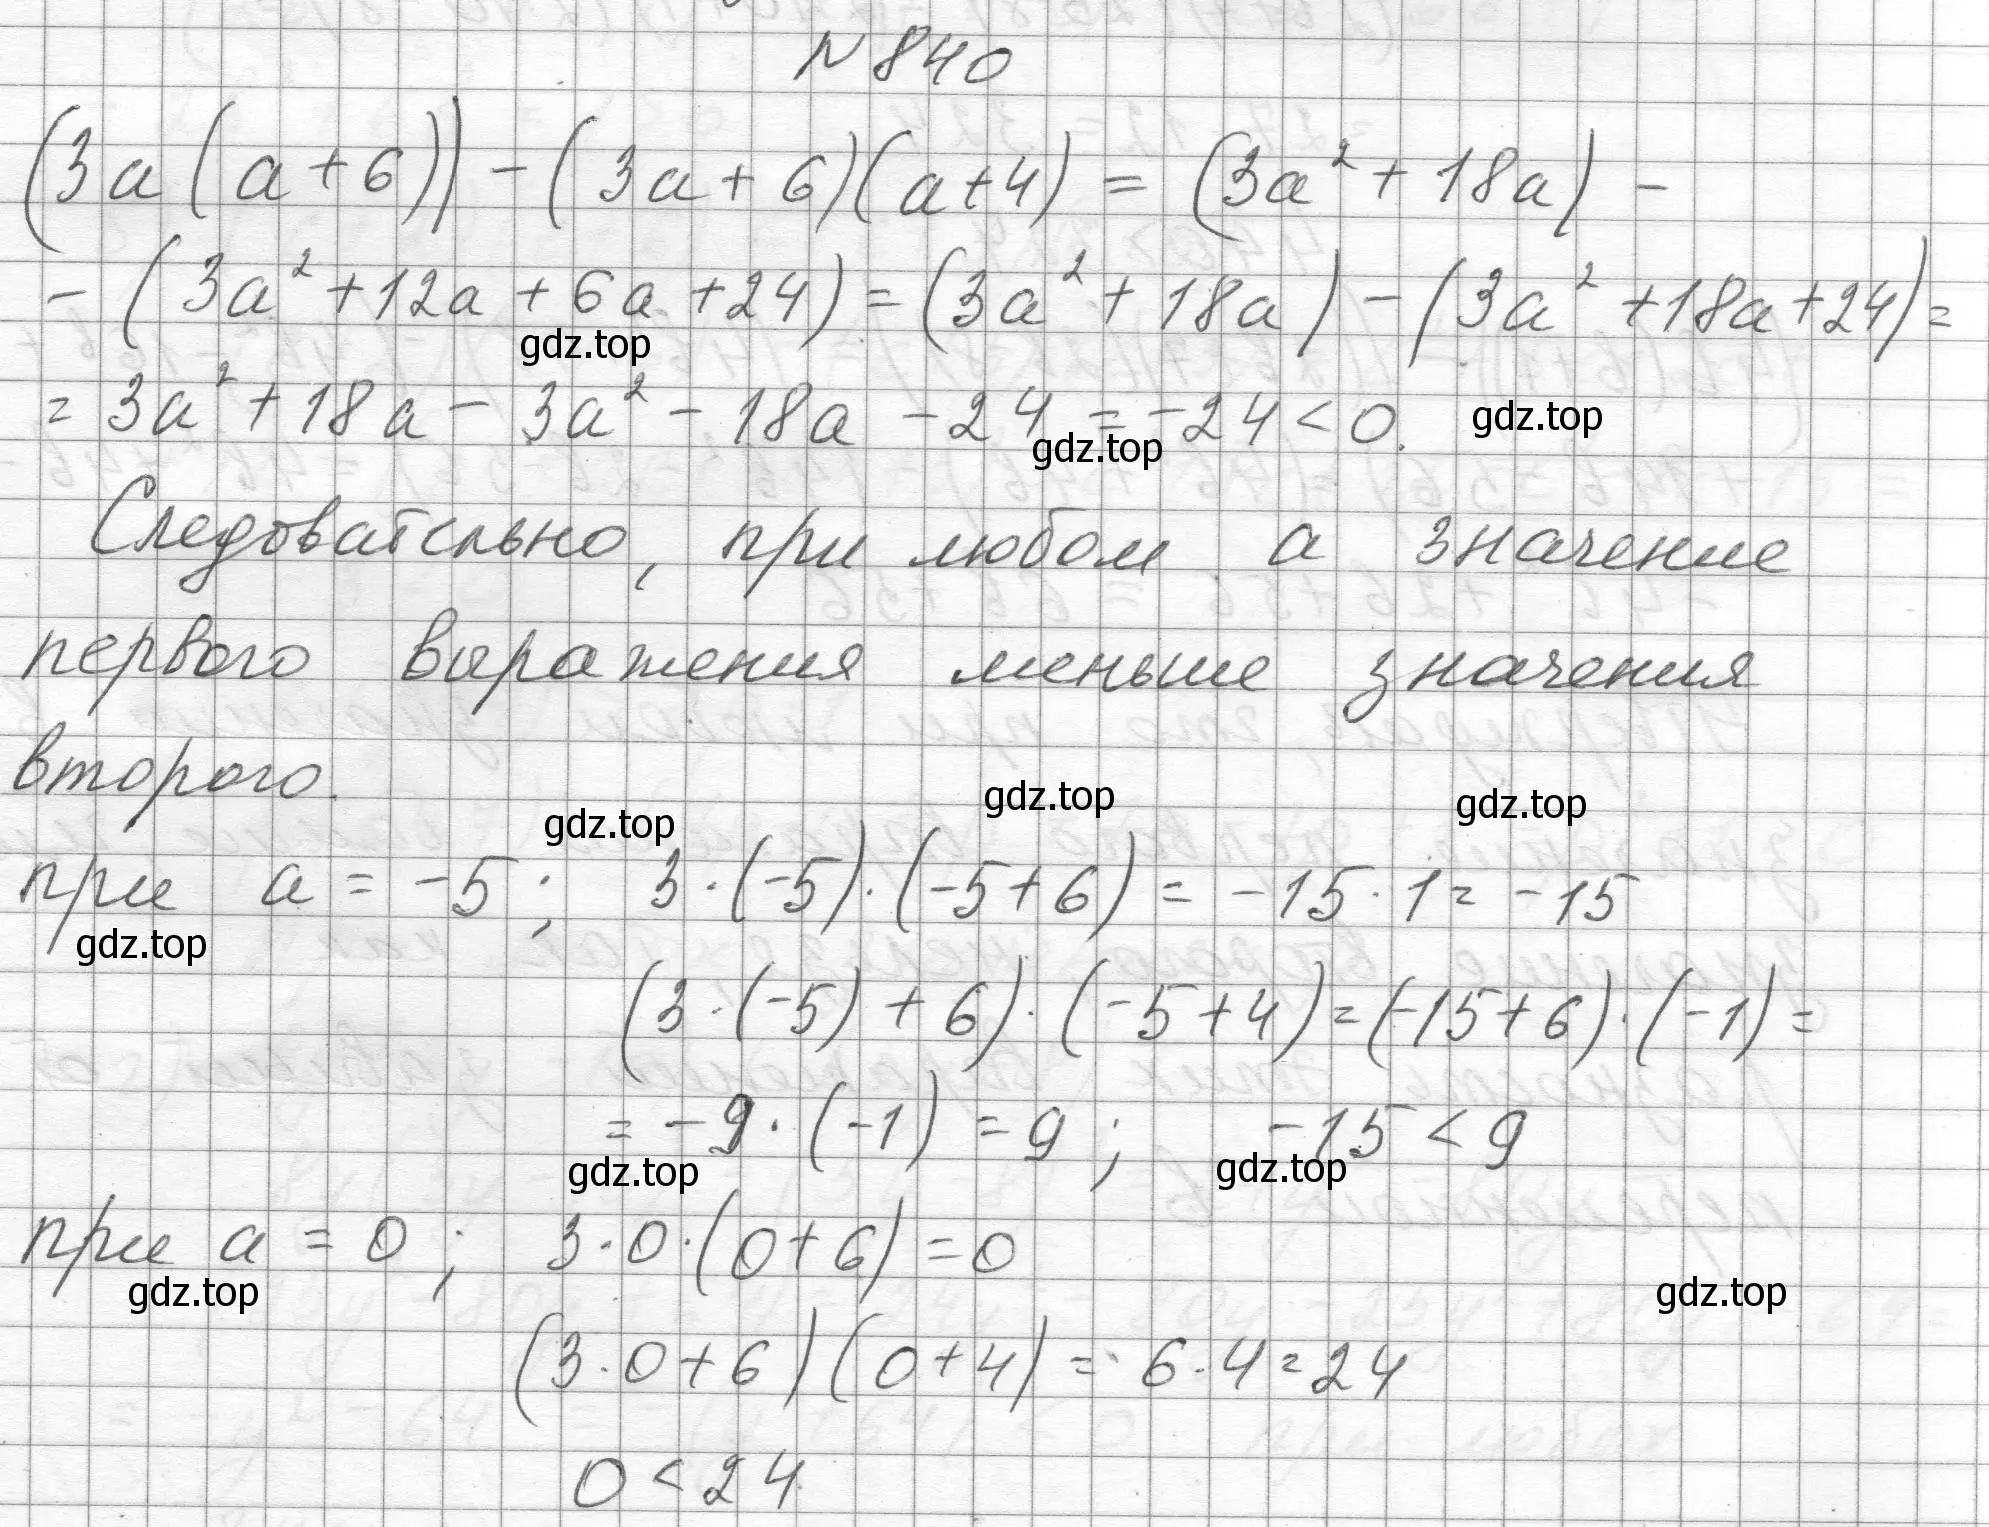 N 840
(3a(a+6))-(3a+6)(a+4)=(3a²+18a)-
-(3a²+12a+6a+24)=(3a²+18a)-(3a²+18a+24)=
=3a²+18a-3a²-18a-24=-24<0.
gdz.top
gdz.top
gdz.top
Следовательно, при любом a значение
первого выражения меньше значения
второго.
gdz.top
gdz.top
gdz.top
при a=-5; 3·(-5)·(-5+6)=-15·1=-15
gdz.top
(3·(-5)+6)·(-5+4)=(-15+6)·(-1)=
=-9·(-1)=9; -15<9
gdz.top
gdz.top
при a=0; 3·0·(0+6)=0
gdz.top
gdz.top
(3·0+6)(0+4)=6·4=24
0<24